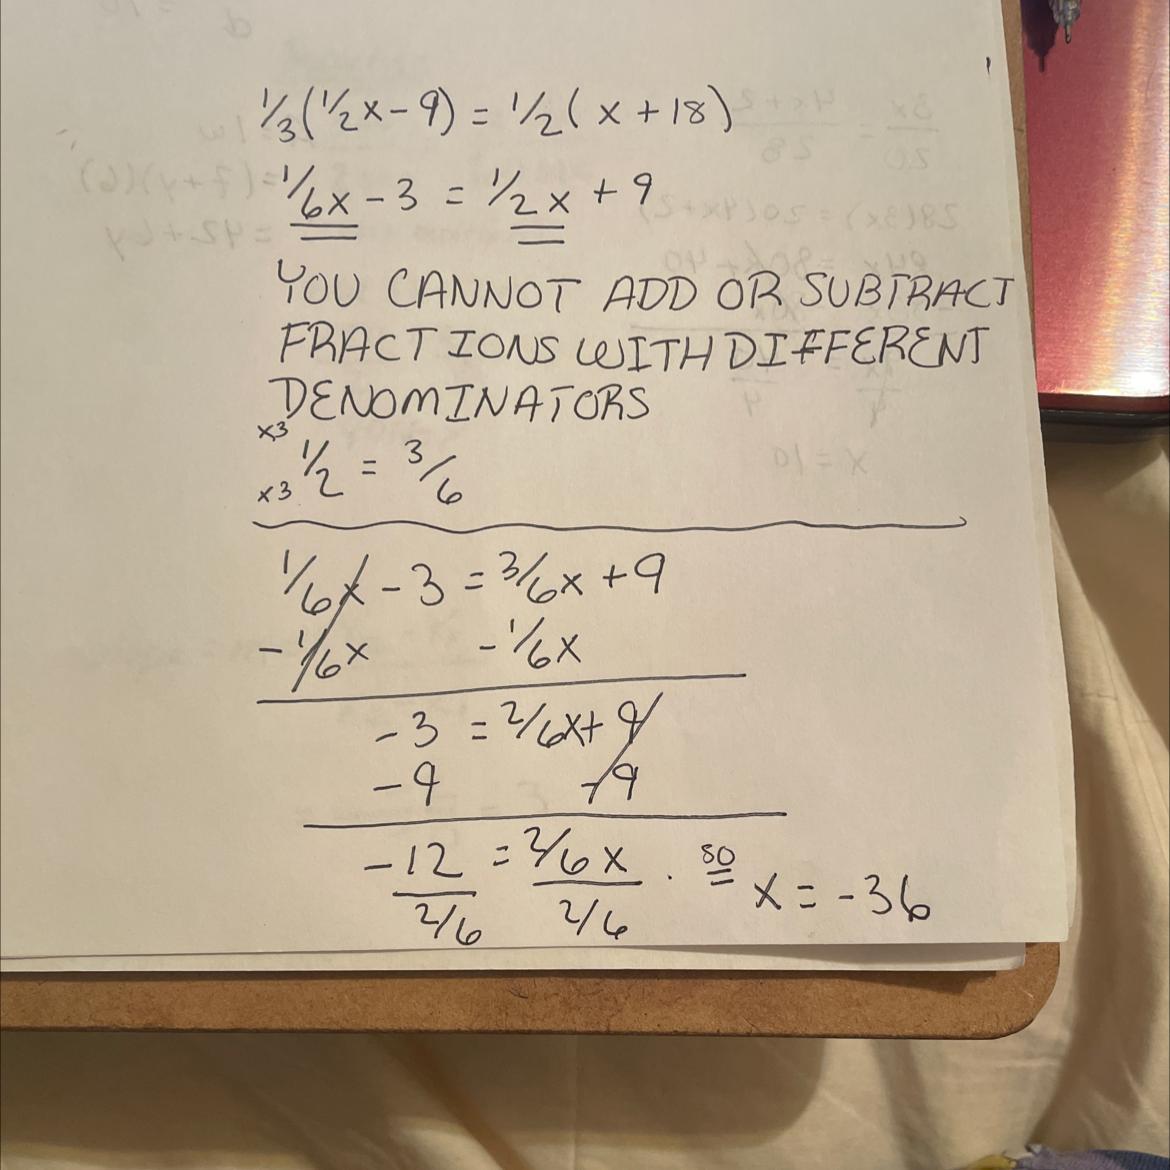 1/3(1/2x-9) = 1/2(x+18)
1/6x-3 = 1/2x+9
YOU CANNOT ADD OR SUBTRACT
FRACTIONS WITH DIFFERENT
DENOMINATORS
x3
x3 1/2 = 3/6
1/6x-3 = 3/6x+9
-1/6x -1/6x
-3 = 2/6x+9
-9 -9
-12 = 2/6x . so x = -36
2/6 2/6